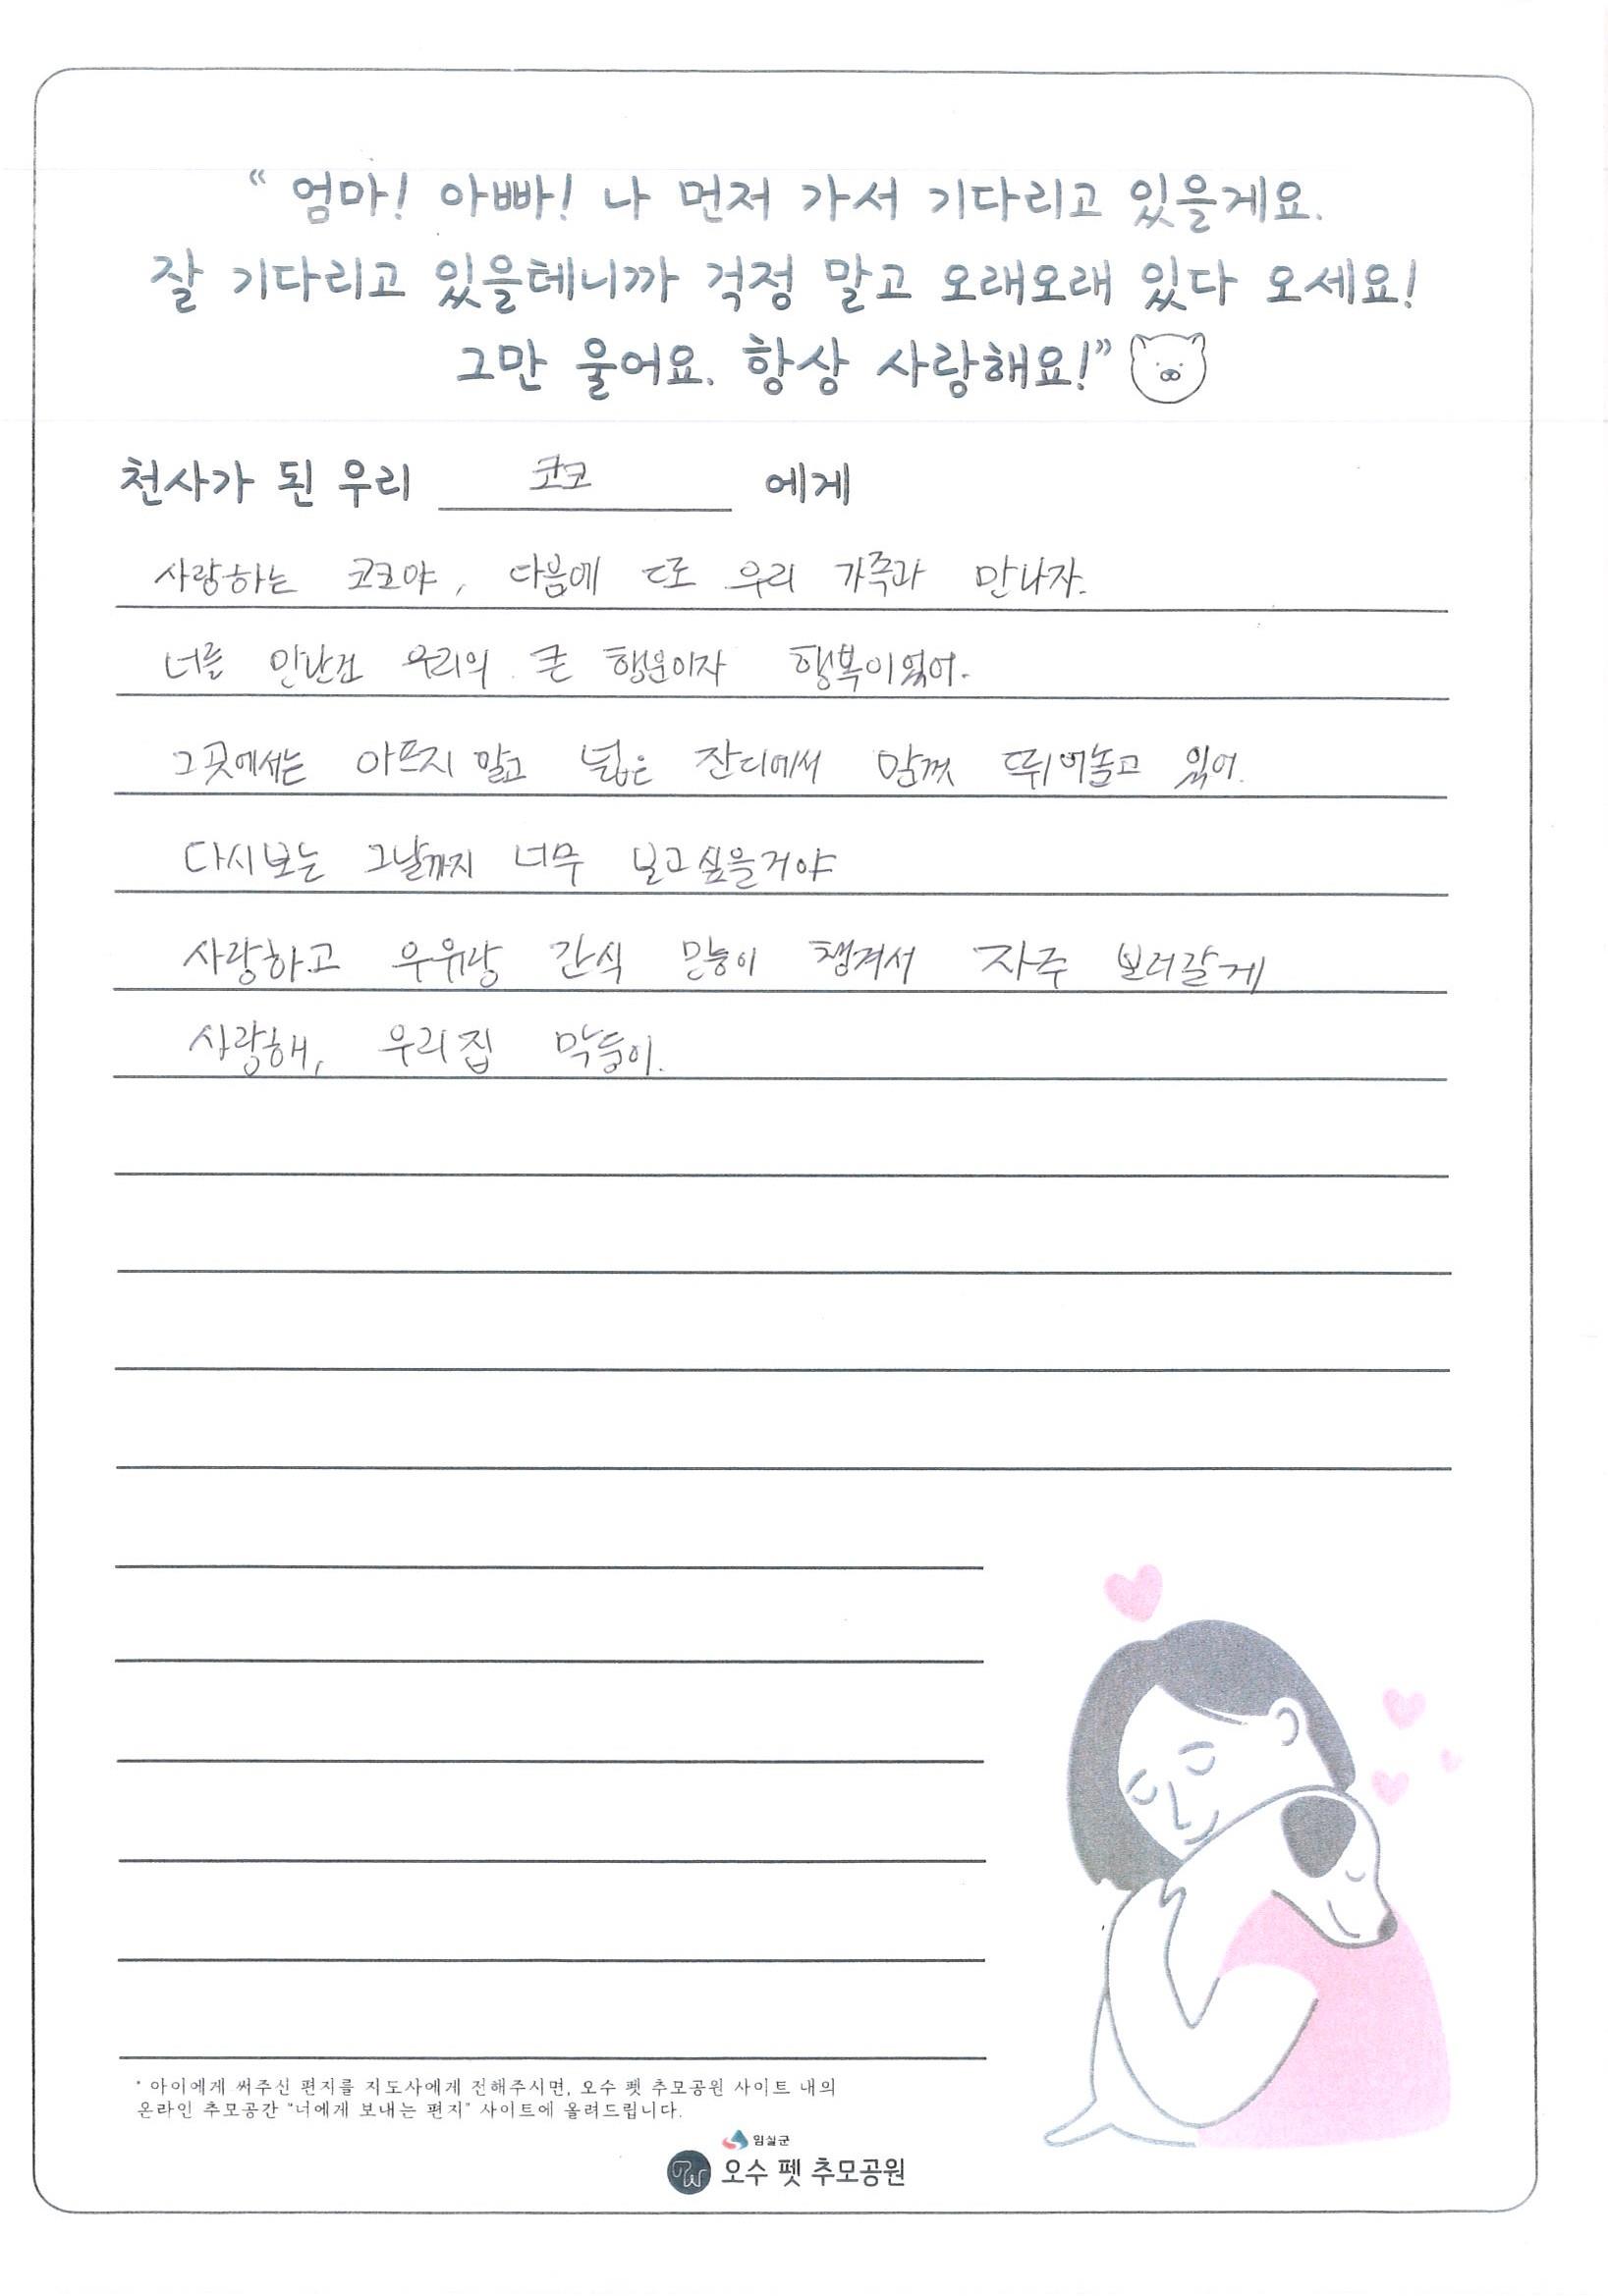 “ 엄마! 아빠! 나 먼저 가서 기다리고 있을게요.
잘 기다리고 있을테니까 걱정 말고 오래오래 있다 오세요!
그만 울어요. 항상 사랑해요!”
천사가 된 우리 코코 에게
사랑하는 코코야, 다음에 또 우리 가족과 만나자.
너를 만난건 우리의 큰 행운이자 행복이었어.
그곳에서는 아프지 말고 넓은 잔디에서 맘껏 뛰어놀고 있어.
다시보는 그날까지 너무 보고싶을거야
사랑하고 우유랑 간식 많이 챙겨서 자주 보러갈게
사랑해, 우리집 막둥이.
* 아이에게 써주신 편지를 지도사에게 전해주시면, 오수 펫 추모공원 사이트 내의
온라인 추모공간 “너에게 보내는 편지” 사이트에 올려드립니다.
임실군
오수 펫 추모공원